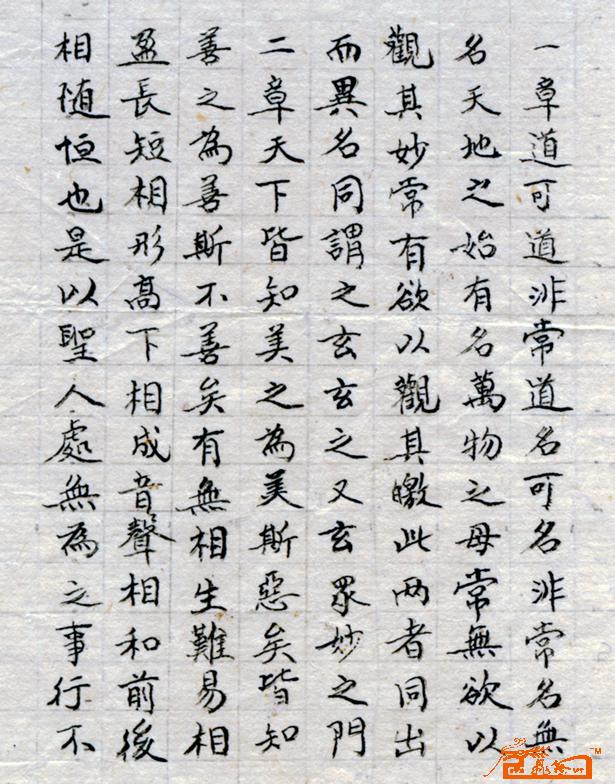 一章道可道非常道名可名非常名無
名天地之始有名萬物之母常無欲以
觀其妙常有欲以觀其皦此两者同出
而異名同謂之玄玄之又玄眾妙之門
二章天下皆知美之為美斯惡矣皆知
善之為善斯不善矣有無相生難易相
盈長短相形高下相成音聲相和前後
相随恒也是以聖人處無為之事行不